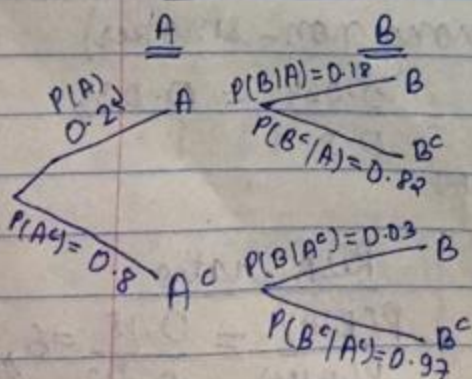 A B
P(A)
0.2
A
P(B|A)=0.18
B
P(Bᶜ/A)=0.82
Bᶜ
P(Aᶜ)= 0.8
Aᶜ
P(B|Aᶜ)=0.03
B
P(Bᶜ/Aᶜ)=0.97
Bᶜ